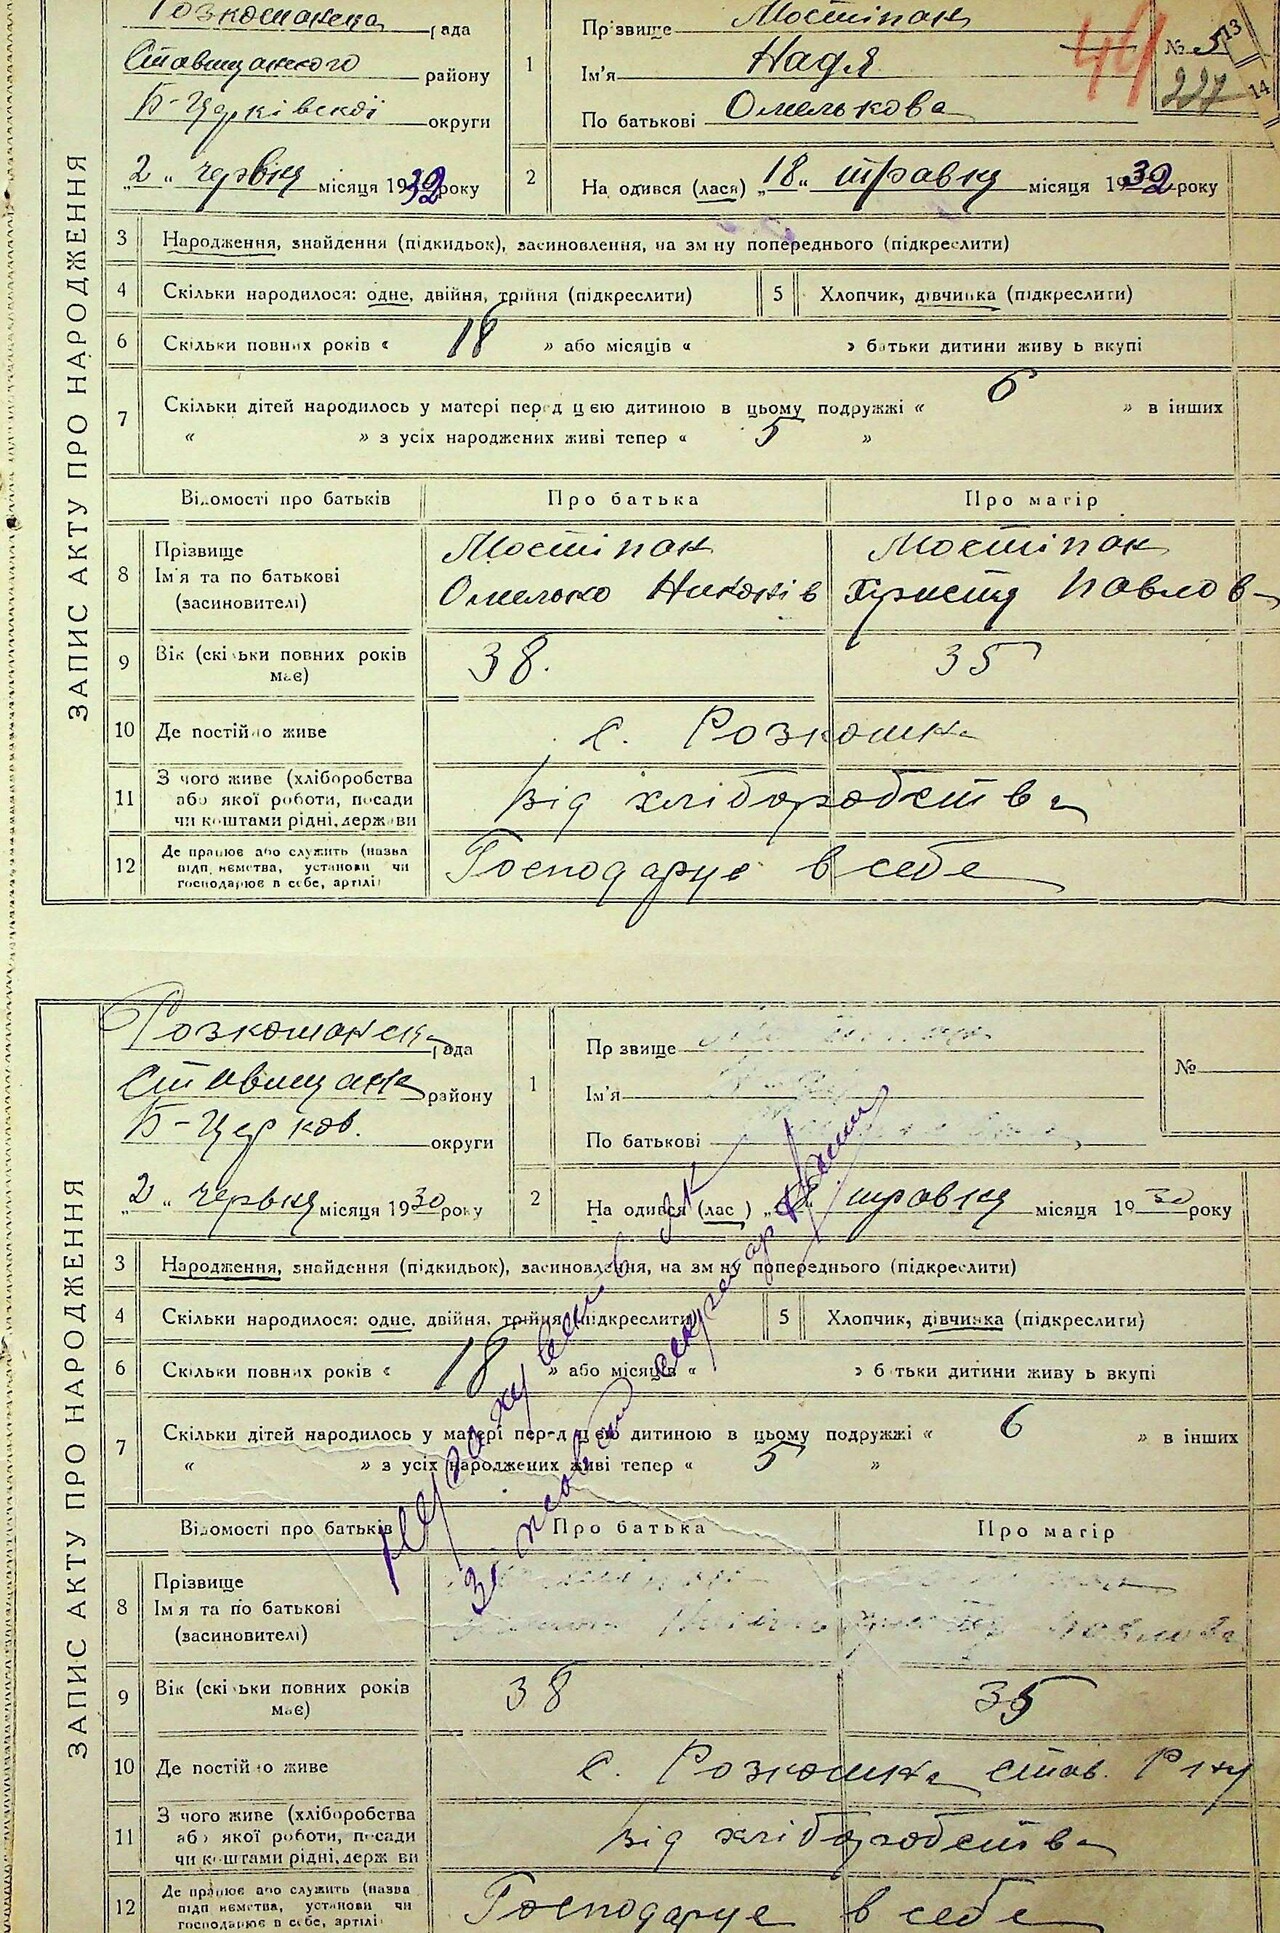 Розкошанська рада
Ставищанского району
Б-Церківскої округи
„2“ червня місяця 1930 року
1
Прізвище Мостіпан
Ім'я Надя
По батькові Омелькова
№ 5
44
227
13
14
2
Народився (лася) „18“ травня місяця 1930 року
ЗАПИС АКТУ ПРО НАРОДЖЕННЯ
3 Народження, знайдення (підкидьок), засиновлення, на зміну попереднього (підкреслити)
4 Скільки народилося: одне, двійня, трійня (підкреслити)
5 Хлопчик, дівчинка (підкреслити)
6 Скільки повних років « 18 » або місяців « » батьки дитини живуть вкупі
7 Скільки дітей народилось у матері перед цією дитиною в цьому подружжі « 6 » в інших
« » з усіх народжених живі тепер « 5 »
Відомості про батьків Про батька Про матір
8 Прізвище Мостіпан Мостіпан
Ім'я та по батькові Омелько Никонів Христя Павлов
(засиновителі)
9 Вік (скільки повних років має) 38. 35
10 Де постійно живе с. Розкошна
11 З чого живе (хліборобства
або якої роботи, посади
чи коштами рідні, держави
від хліборобства
12 Де працює або служить (назва
підприємства, установи чи
господарює в себе, артілі)
Господарує в себе
Розкошанська рада
Ставищанск району
Б-Церков. округи
„2“ червня місяця 1930 року
1
Прізвище
Ім'я
По батькові
№
2
Народився (лас ) „18“ травня місяця 1930 року
ЗАПИС АКТУ ПРО НАРОДЖЕННЯ
3 Народження, знайдення (підкидьок), засиновлення, на зміну попереднього (підкреслити)
4 Скільки народилося: одне, двійня, трійня (підкреслити)
5 Хлопчик, дівчинка (підкреслити)
6 Скільки повних років « 18 » або місяців « » батьки дитини живуть вкупі
7 Скільки дітей народилось у матері перед цією дитиною в цьому подружжі « 6 » в інших
« » з усіх народжених живі тепер « 5 »
секретар
Відомості про батьків Про батька Про матір
8 Прізвище
Ім'я та по батькові Павлова
(засиновителі)
9 Вік (скільки повних років має) 38 35
10 Де постійно живе с. Розкошна став. Р-ну
11 З чого живе (хліборобства
або якої роботи, посади
чи коштами рідні, держави
від хліборобства
12 Де працює або служить (назва
підприємства, установи чи
господарює в себе, артілі
Господарує в себе